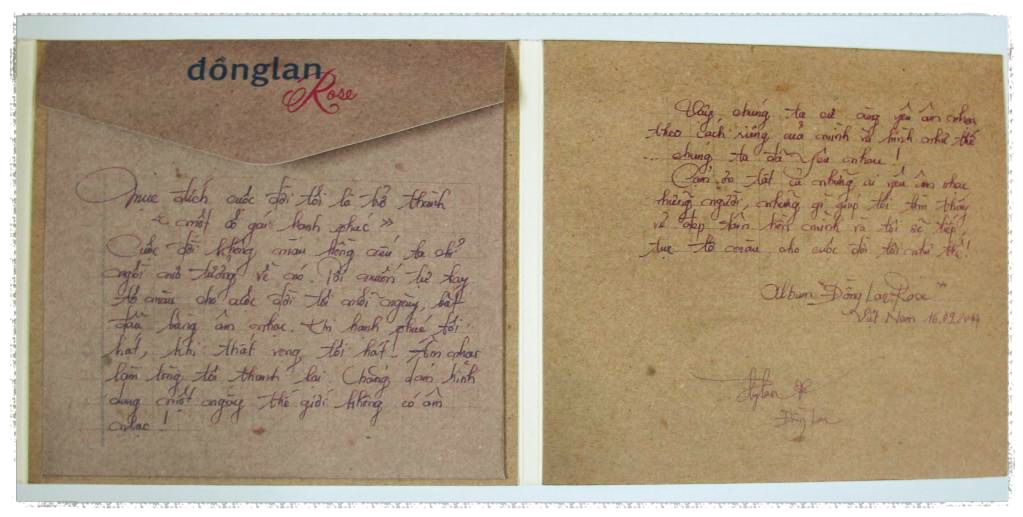 đônglan
Rose
Mục đích cuộc đời tôi là trở thành
" một cô gái hạnh phúc »
Cuộc đời không màu hồng nếu ta chỉ
ngồi mơ tưởng về nó. Tôi muốn tự tay
tô màu cho cuộc đời tôi mỗi ngày, bắt
đầu bằng âm nhạc. Khi hạnh phúc tôi
hát, khi thất vọng tôi hát! Âm nhạc
làm lòng tôi thanh lại. Chẳng dám hình
dung một ngày thế giới không có âm
nhạc!
Vậy chúng ta cứ cùng yêu âm nhạc
theo cách riêng của mình và hình như thế
... chúng ta đã yêu nhau!
Cảm ơn tất cả những ai yêu âm nhạc
những người, những gì giúp tôi tìm thấy
vẻ đẹp tâm hồn mình và tôi sẽ tiếp
tục tô màu cho cuộc đời tôi như thế!
Album "Đồng Lan Rose"
Việt Nam 16.09
Đồng Lan